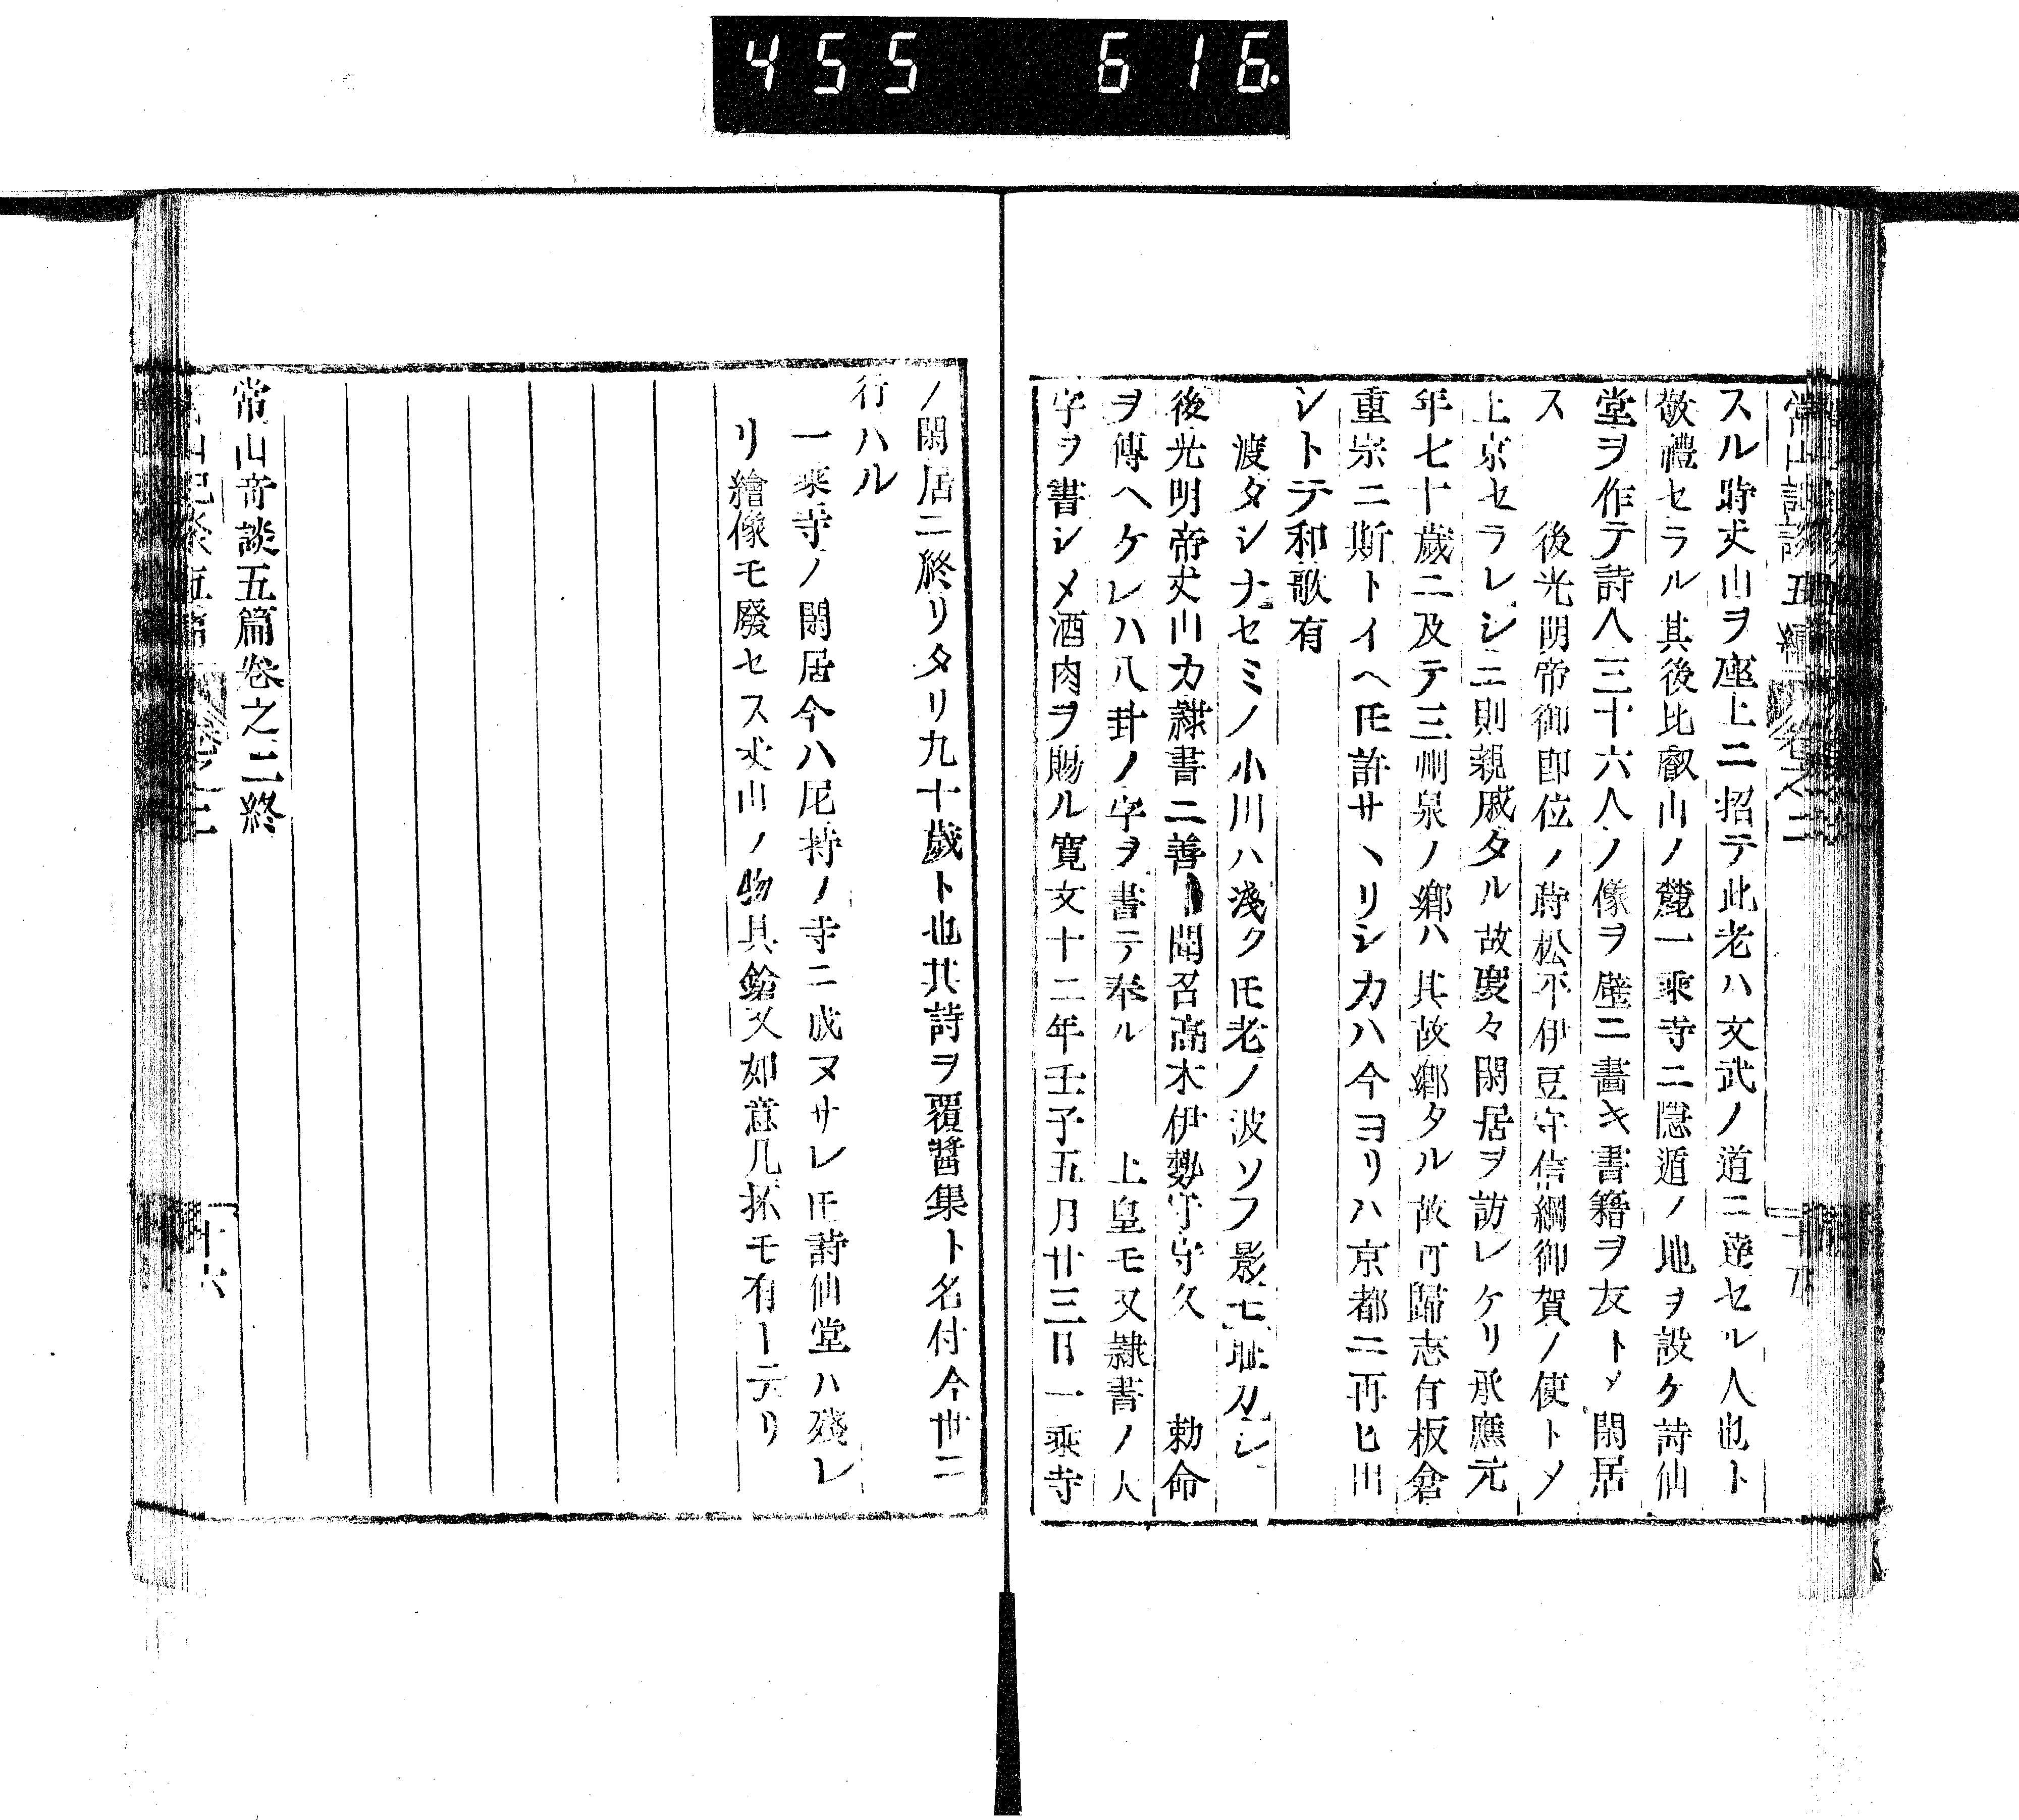 455 616.
スル時丈山ヲ座上ニ招テ此老ハ文武ノ道ニ達セル人也ト
敬禮セラル其後比叡山ノ麓一乘寺ニ隱遁ノ地ヲ設ケ詩仙
堂ヲ作テ詩人三十六人ノ像ヲ壁ニ畵キ書籍ヲ友トメ閑居
ス　　後光明帝御即位ノ時松平伊豆守信綱御賀ノ使トメ
上京セラレシニ則親戚タル故度々閑居ヲ訪レケリ承應元
年七十歲ニ及テ三州泉ノ鄕ハ其故鄕タル故可歸志有板倉
重宗ニ斯トイヘ𪜈許サヽリシカハ今ヨリハ京都ニ再ヒ出
シトテ和歌有
渡タシナセミノ小川ハ淺ク𪜈老ノ波ソフ影モ耻カシ
後光明帝丈山カ隷書ニ善ヿ聞召高木伊勢守守久　　勅命
ヲ傳ヘケレハ八卦ノ字ヲ書テ奉ル　　上皇モ又隷書ノ大
字ヲ書シメ酒肉ヲ賜ル寬文十二年壬子五月廿三日一乘寺
ノ閑居ニ終リタリ九十歲ト也其詩ヲ覆醬集ト名付今世ニ
行ハル
一乘寺ノ閑居今ハ尼持ノ寺ニ成ヌサレ𪜈詩仙堂ハ殘レ
リ繪像モ廢セス丈山ノ物具鎗又如意几抔モ有ーテリ
常山奇談五篇卷之二終
十六